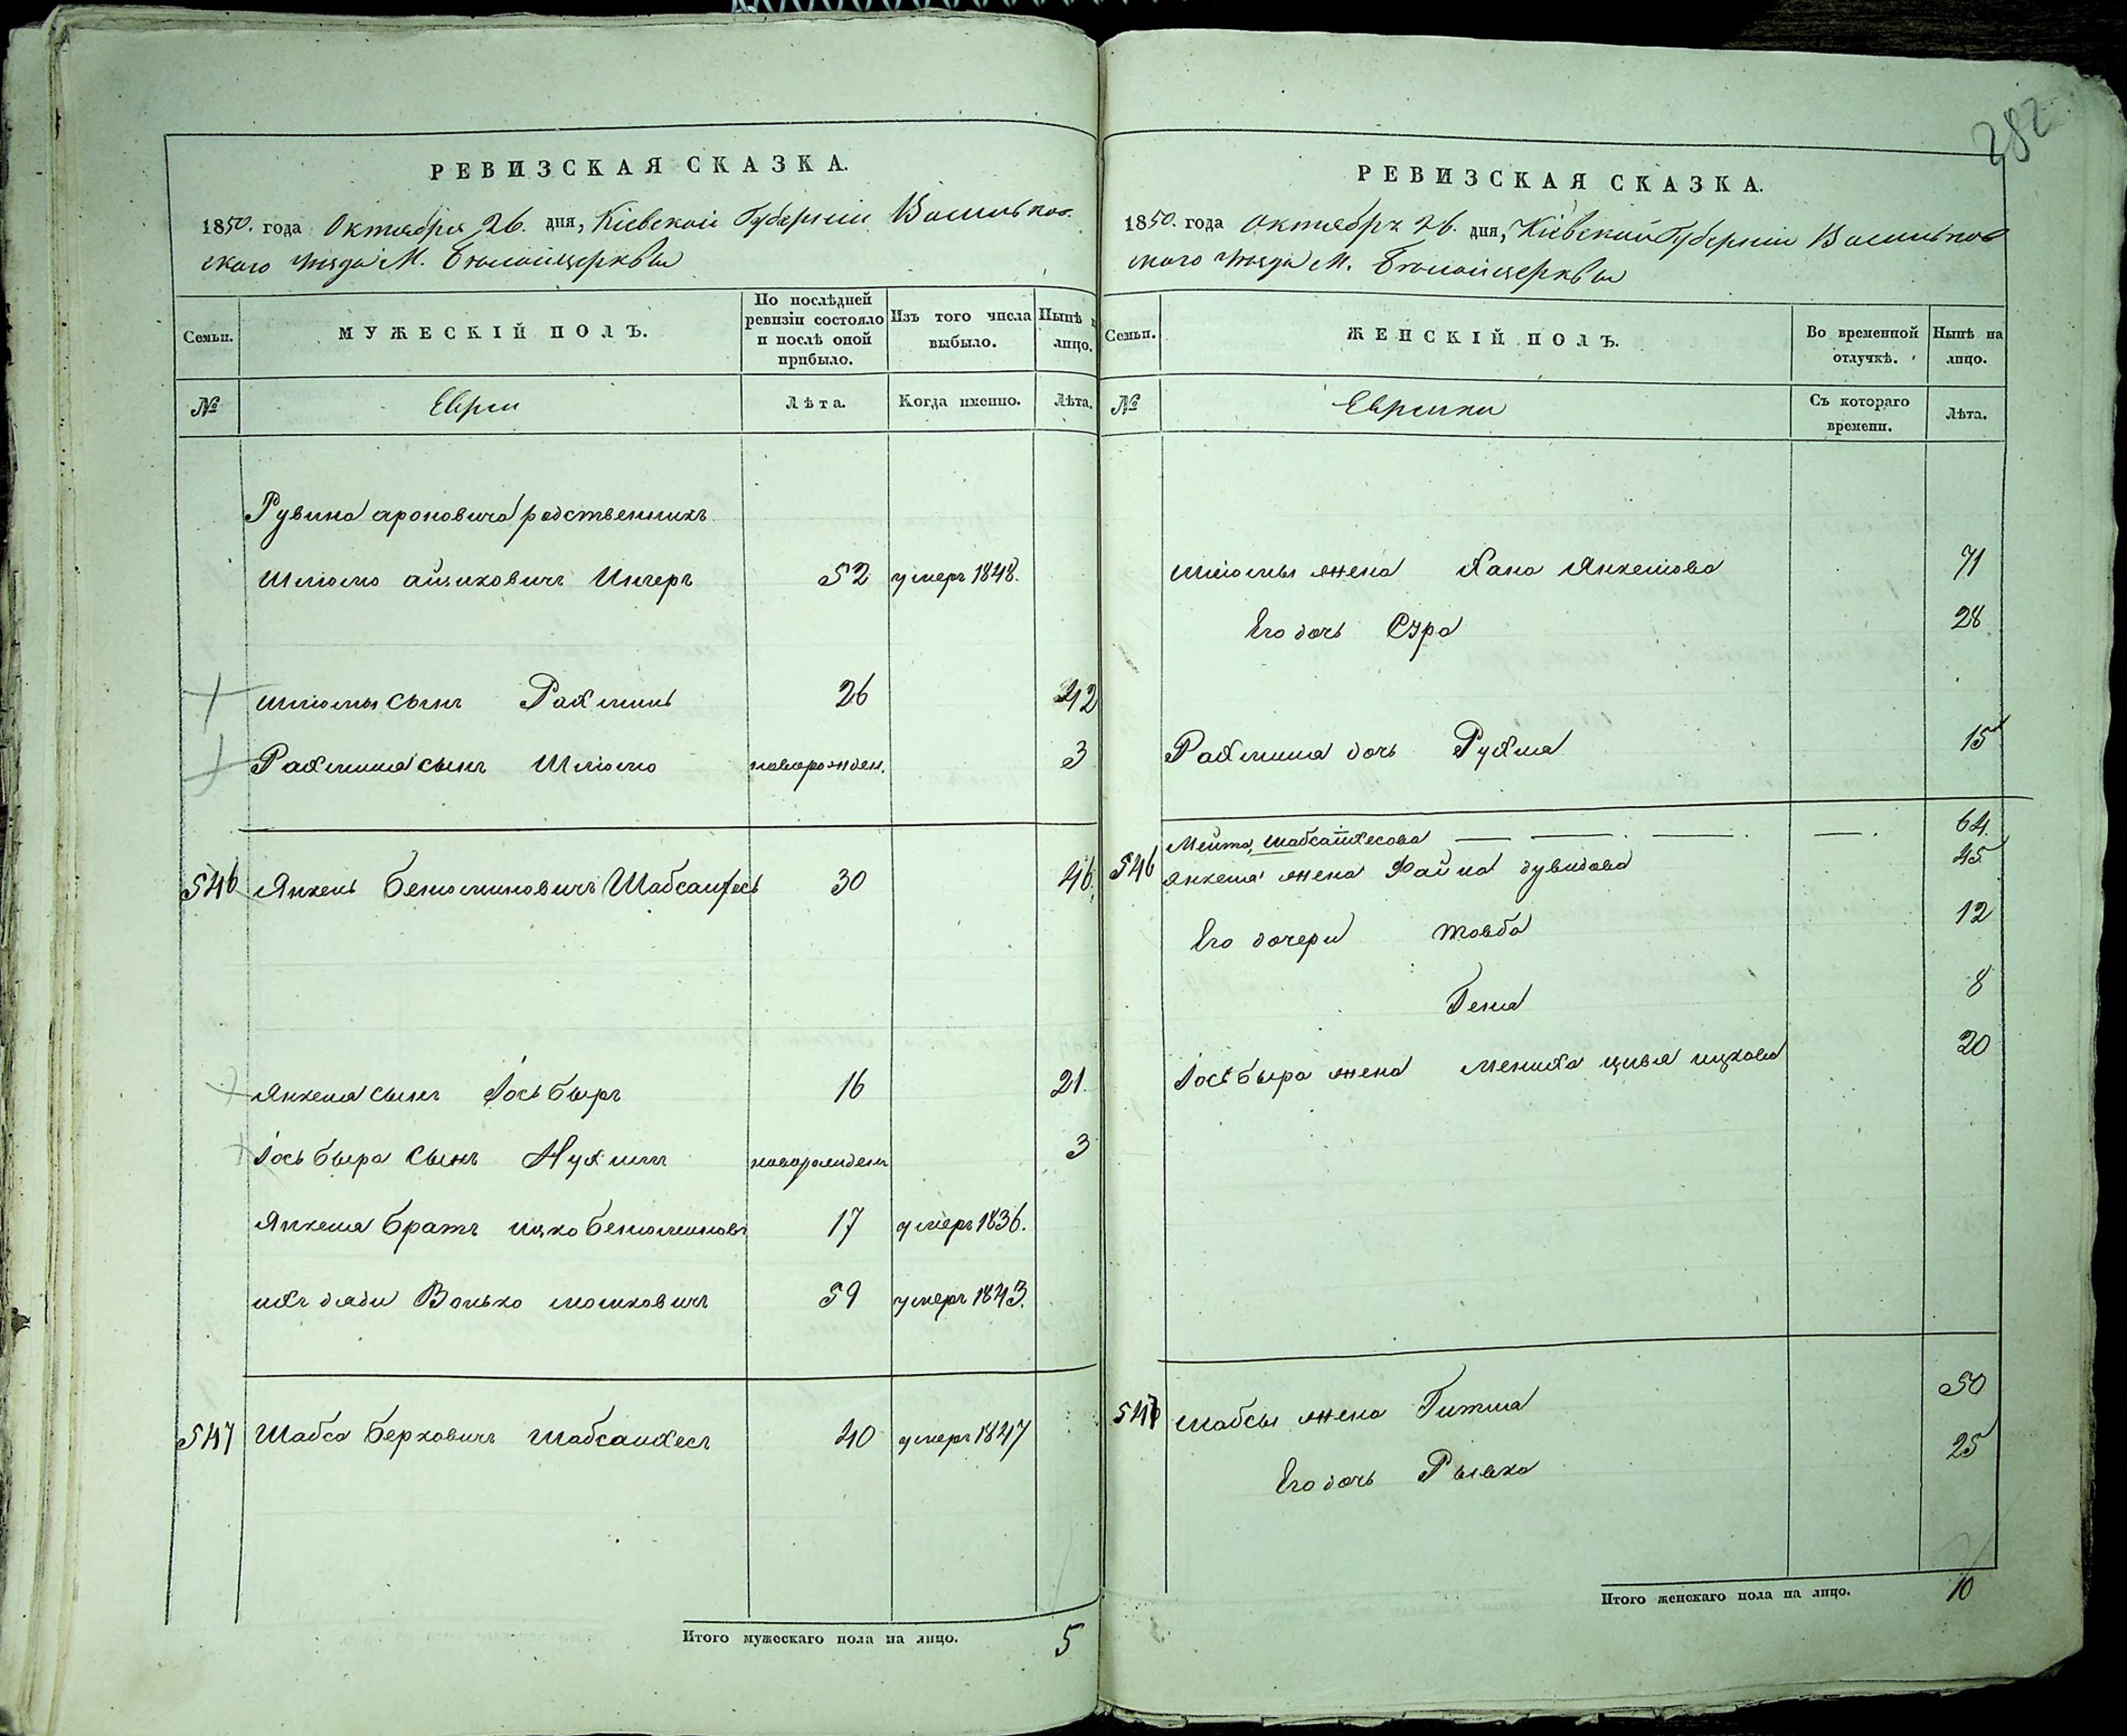 282
РЕВИЗСКАЯ СКАЗКА.
1850. года Октября 26. дня, Кіевской Губерніи Васильков-
скаго уезда М. Белойцеркви
Семьи.
МУЖЕСКІЙ ПОЛЪ.
По послѣдней ревизіи состояло и послѣ оной прибыло.
Изъ того числа выбыло.
Нынѣ на лицо.
№
Евреи
Лѣта.
Когда именно.
Лѣта.
Рувина ароновича родственникъ
Шліомо айциковичъ Ингеръ 52 умеръ 1848.
Шліомы сынъ Рахмиль 26 42
Рахмиля сынъ Шліомо новорожден. 3
546 Янкель Беньоминовичъ Шабсаихесъ 30 46.
Янкеля сынъ Іось бэръ 16 21.
Іось бэра сынъ Нухимъ новорожденъ 3
Янкеля братъ ицко Беньоминовъ 17 умеръ 1836.
ихъ дядя Волько мошковичъ 59 умеръ 1843.
547 Шабса Берковичъ Шабсаихесъ 40 умеръ 1847
Итого мужескаго пола на лицо. 5
РЕВИЗСКАЯ СКАЗКА.
1850. года Октябрь 26. дня, Кіевской Губерніи Васильков
скаго уезда М. Белойцеркви
Семьи.
ЖЕНСКІЙ ПОЛЪ.
Во временной отлучкѣ.
Нынѣ на лицо.
№
Еврейки
Съ котораго времени.
Лѣта.
Шліомы жена Хана Янкелова 71
Его дочь Сура 28
Рахмиля дочь Рухля 15
Мейта, Шабсаихесова — — . — . — . 64.
546 Янкеля жена Файга дувидова 45.
Его дочери Товба 12
Геня 8
Іось бэра жена Мениха цивья ицкова 20
547 Шабсы жена Гитля 50
Его дочь Рывка 25
Итого женскаго пола на лицо. 10